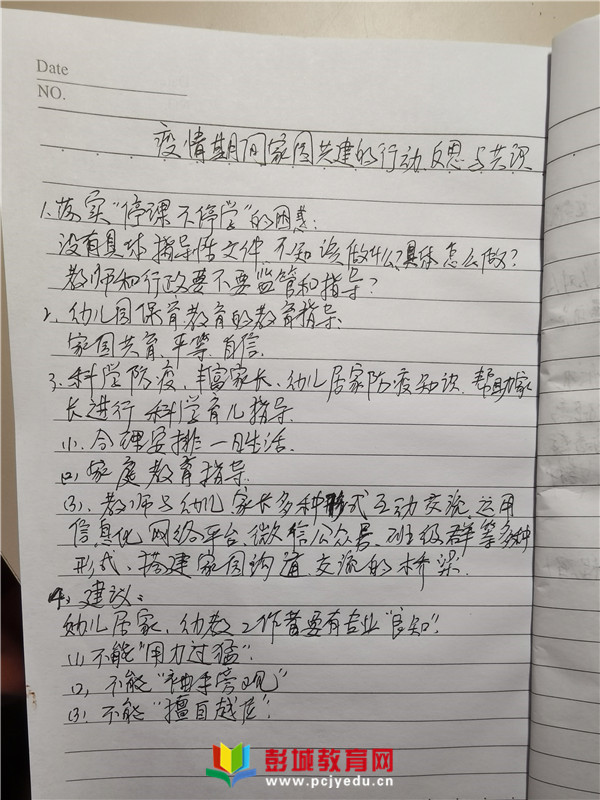 Date
NO.
疫情期间家园共建的行动反思与共识
1.落实“停课不停学”的困惑:
没有具体指导性文件,不知该做什么?具体怎么做?
教师和行政要不要监管和指导?
2、幼儿园保育教育的教育指导.
家园共育、平等、自信.
3、科学防疫,丰富家长、幼儿居家防疫知识,帮助家
长进行科学育儿指导.
(1).合理安排一日生活.
(2),家庭教育指导.
(3),教师与幼儿家长多种形式互动交流,运用
信息化网络平台、微信公众号、班级群等多种
形式、搭建家园沟通、交流的桥梁.
4、建议:
幼儿居家,幼教工作者要有专业“良知”.
(1),不能“用力过猛”.
(2),不能“袖手旁观”
(3),不能“擅自越位”.
彭城教育网
www.pcjyedu.cn